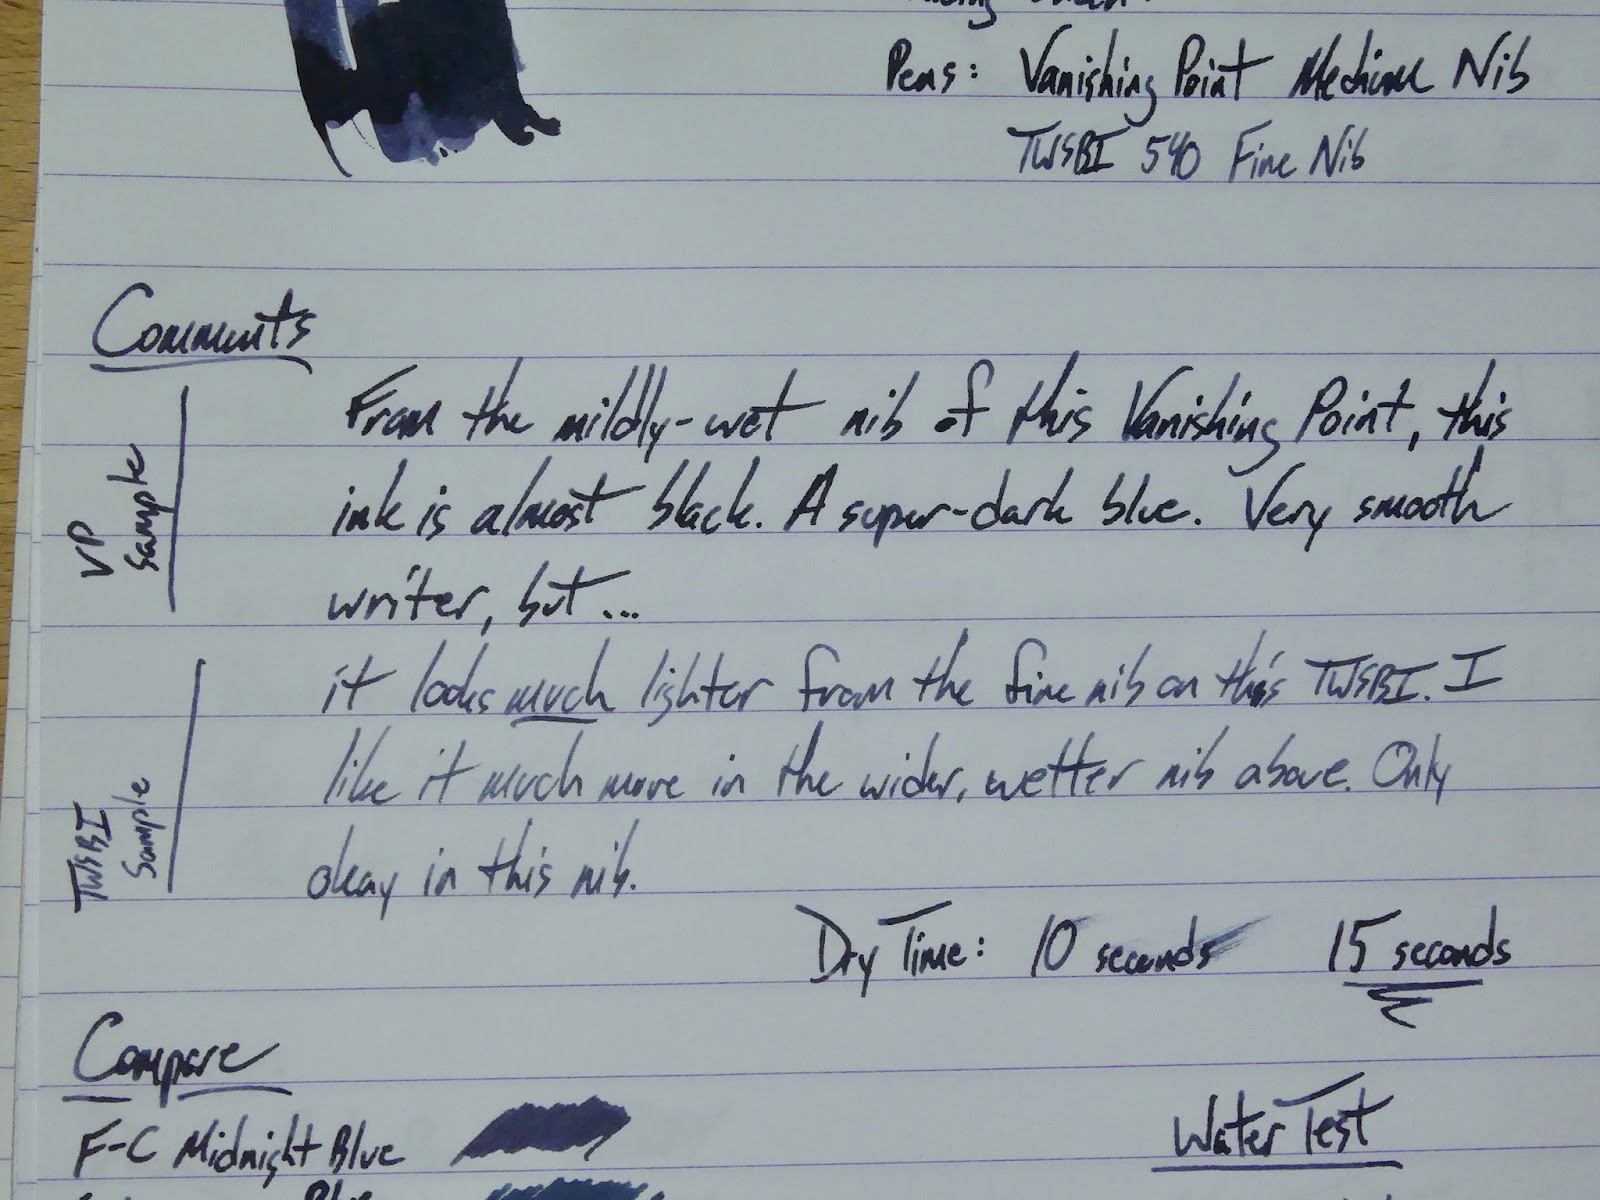 Pens: Vanishing Point Medium Nib
TWSBI 540 Fine Nib
Comments
VP
Sample
From the mildly-wet nib of this Vanishing Point, this
ink is almost black. A super-dark blue. Very smooth
writer, but...
TWSBI
Sample
it looks much lighter from the fine nib on this TWSBI. I
like it much more in the wider, wetter nib above. Only
okay in this nib.
Dry Time: 10 seconds 15 seconds
Compare
F-C Midnight Blue
Water Test
Blue